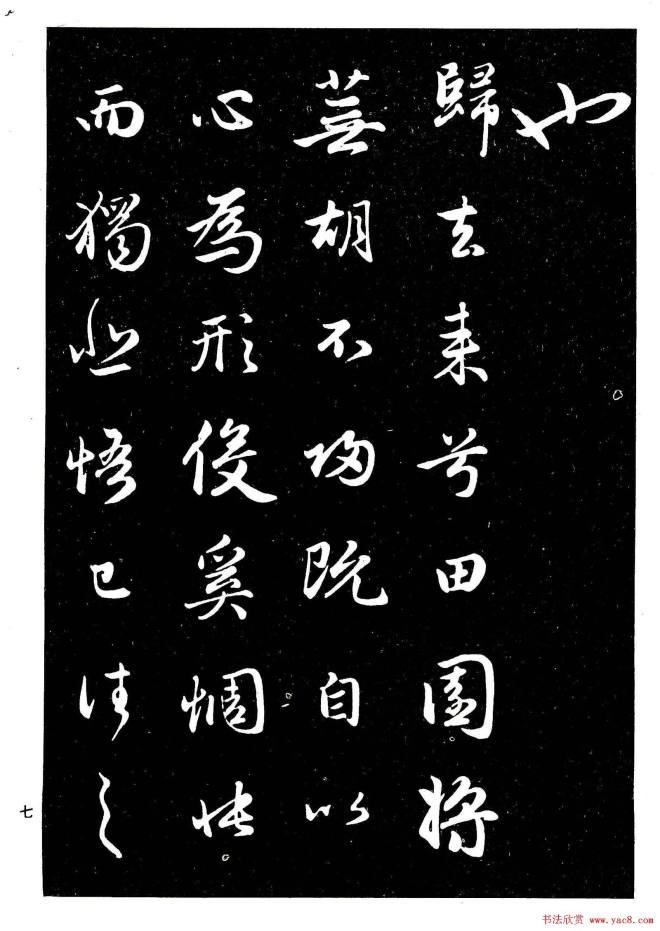 也
歸去来兮田園將
蕪胡不歸既自以
心為形役奚惆悵
而獨悲悟已往之
七
书法欣赏 www.yac8.com